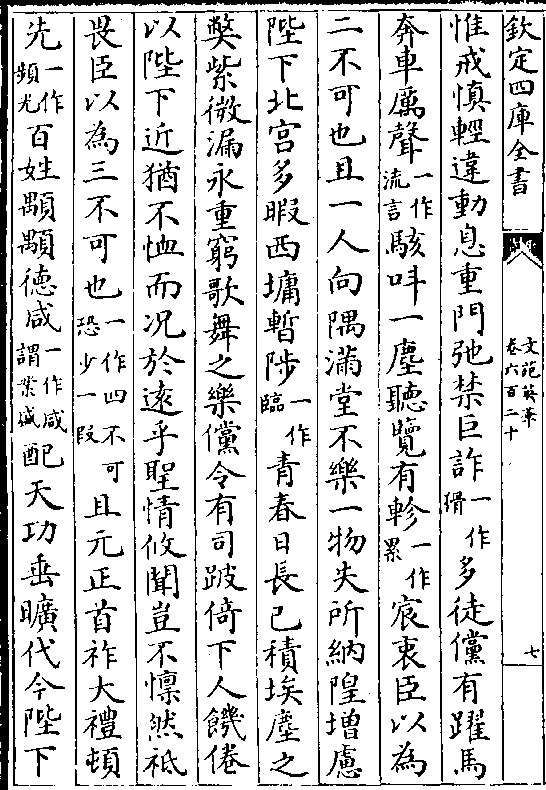 欽定四庫全書
文苑英華
卷六百二十
七
惟戒慎輕違動息重門弛禁巨詐一作猾多徒儻有躍馬
奔車厲聲一作流言駭叫一塵聽覽有軫一作累宸衷臣以為
二不可也且一人向隅滿堂不樂一物失所納隍增慮
陛下北宮多暇西墉暫陟一作臨青春日長已積埃塵之
弊紫微漏永重窮歌舞之樂儻令有司跛倚下人饑倦
以陛下近猶不恤而况於逺乎聖情攸聞豈不懍然祗
畏臣以為三不可也一作四不可恐少一段且元正首祚大禮頓
先一作頻光百姓顒顒德咸一作咸謂業減配天功垂曠代今陛下